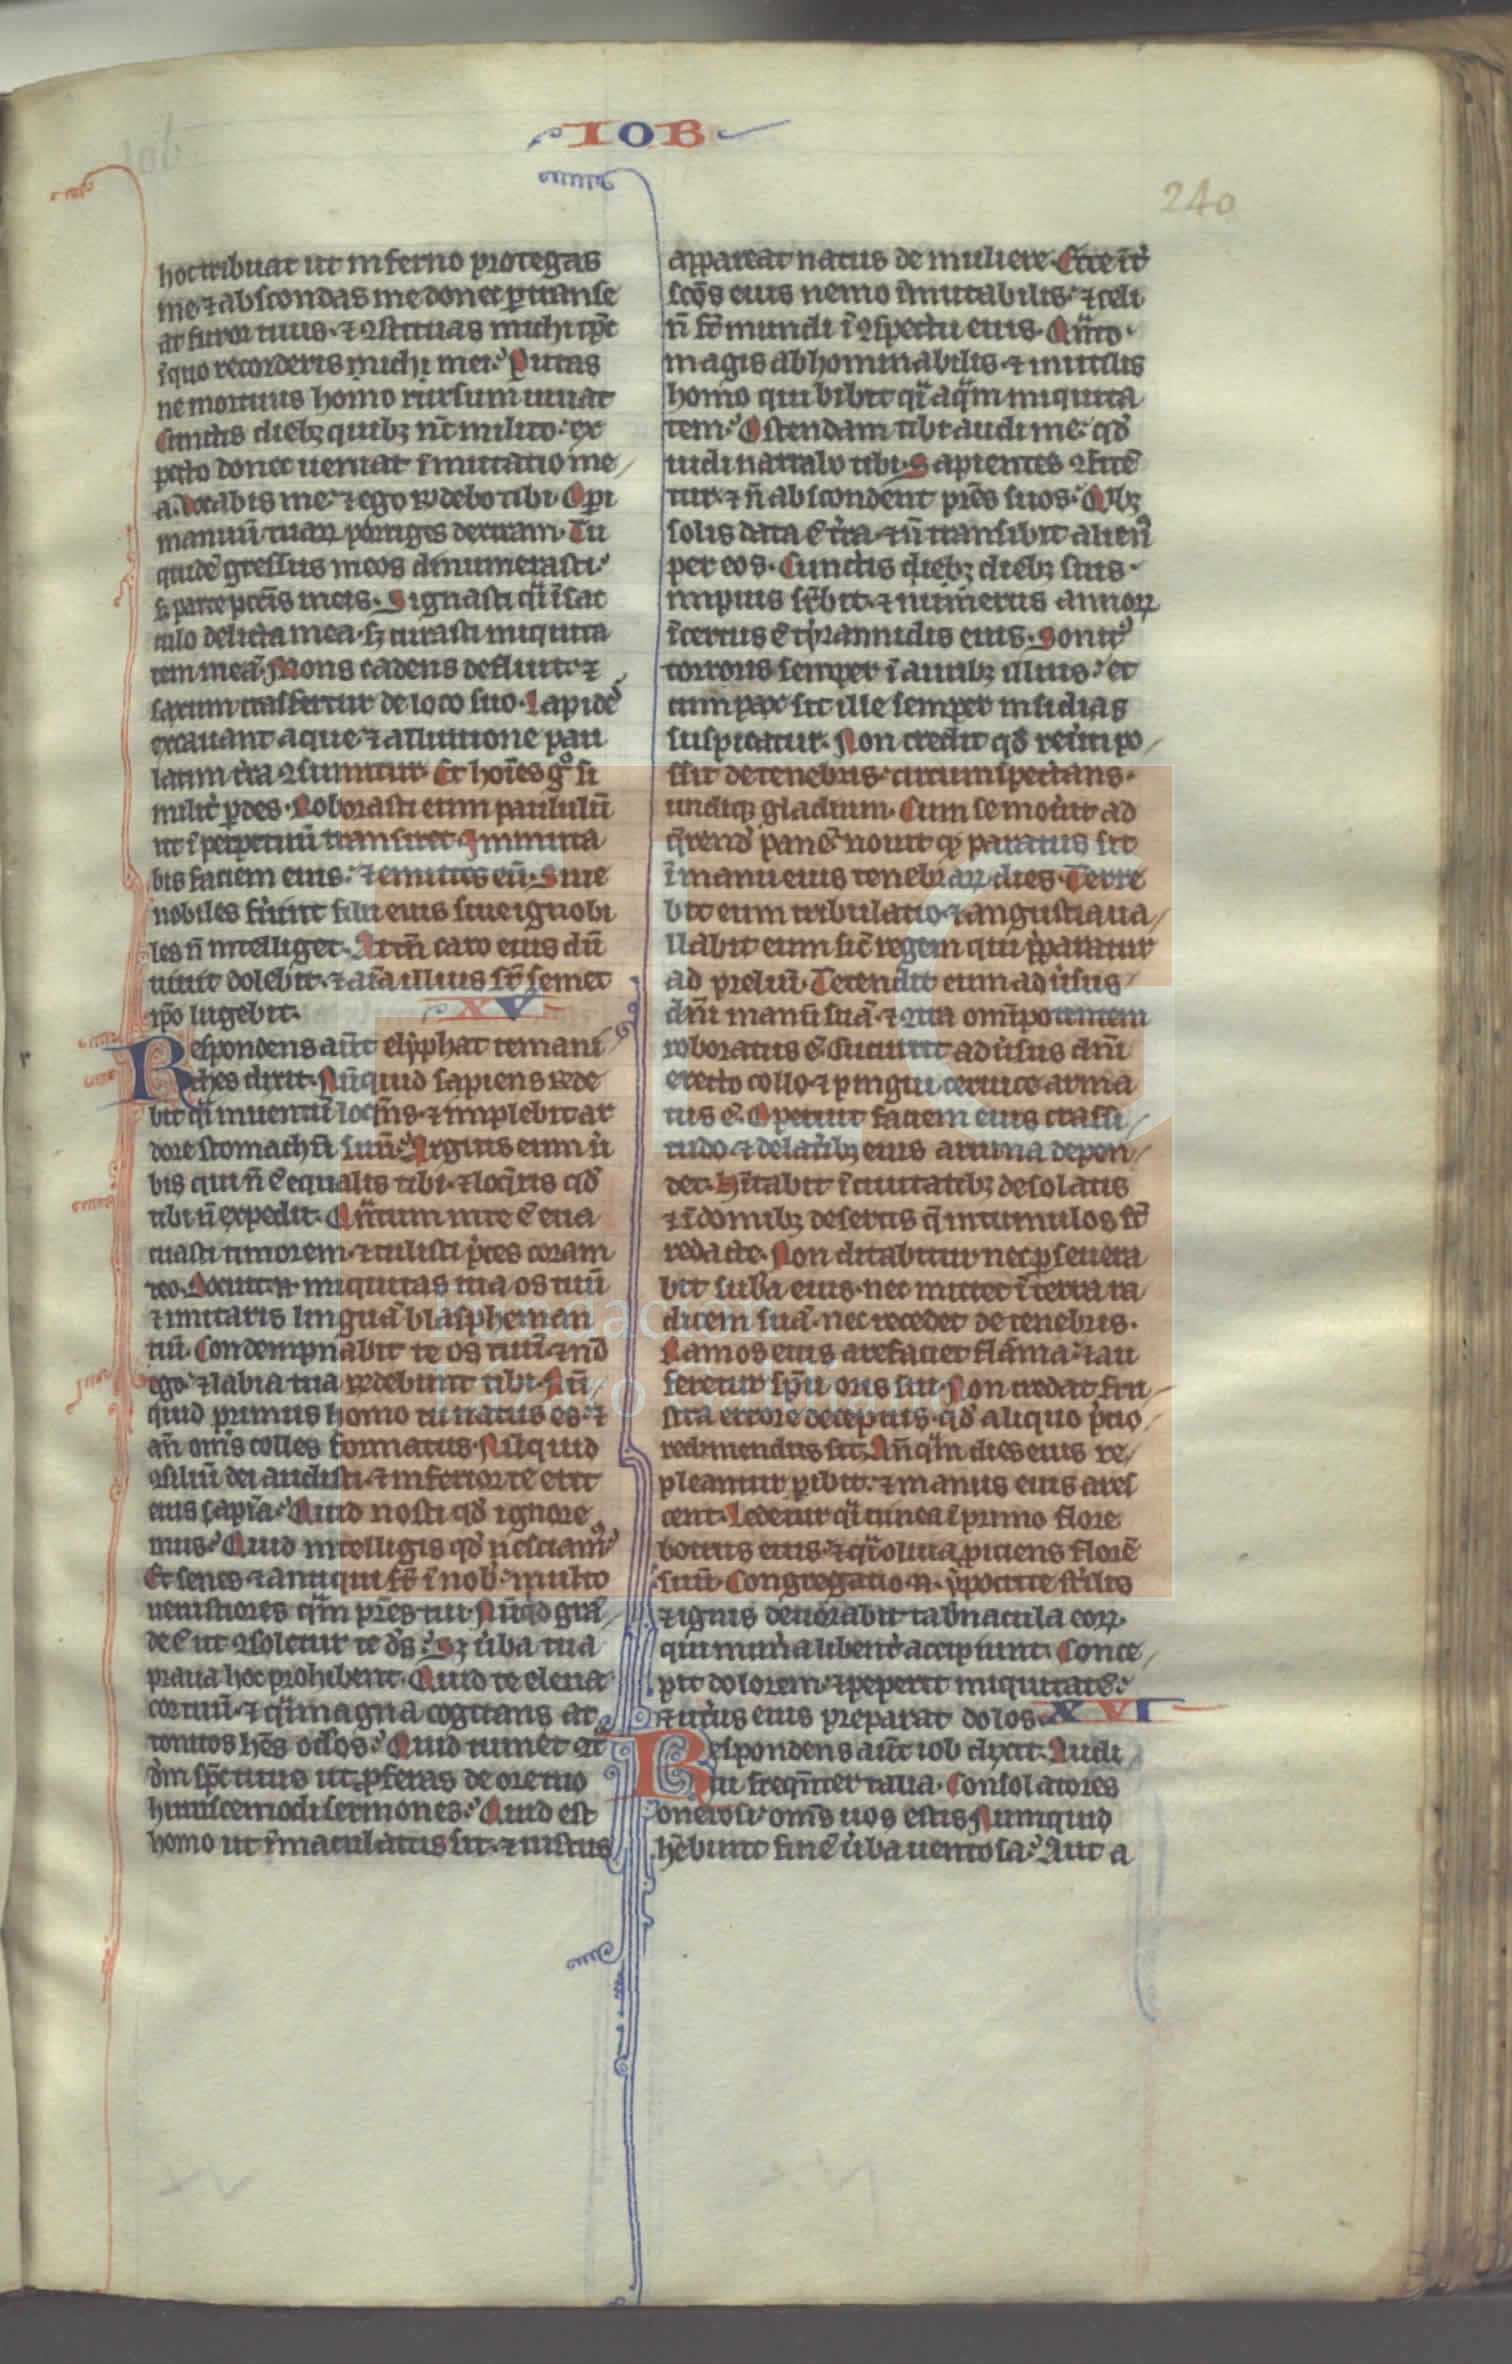 IOB
240
hoc tribuat ut in ferno protegas
me ⁊ abscondas me donec ꝑtranse
at furor tuus · ⁊ ꝯstituas michi tp̄c
ī quo recorderis michi mei · Putas
ne mortuus homo rursum uiuat
Cunctis diebꝫ quibꝫ nc̄ milito · ex
pecto donec ueniat īmutatio me
a · Vocabis me · ⁊ ego rn̄debo tibi · Oꝑi
manuū tuaꝝ porriges dexteram · Tu
quidē gressus meos dinumerasti ·
sꝫ parce pcc̄is meis · Signasti qͣi ī sac
culo delicta mea · sꝫ curasti iniquita
tem meā · Mons cadens defluit · ⁊
saxum trāsfertur de loco suo · Lapidē
excauant aque · ⁊ alluuione pau
latim tr̄a ꝯsumitur · Et hoīes gͦ si
milit̄ ꝑdes · Roborasti eum paululū
ut ī perpetuū transiret · Inmuta
bis faciem eius · ⁊ emittes eū · Siue
nobiles fūint filii eius siue ignobi
les n̄ intelliget · Attn̄ caro eius dū
uiuit dolebit · ⁊ aīa illius sr̄ semet
ip̄o lugebit · XV
Respondens aūt elyphat temani
thes dixit · Nūquid sapiens rn̄de
bit qͣi in uentū loq̄ns · ⁊ implebit ar
dore stomachū suū · Arguis eum ū
bis qui n̄ ē equalis tibi · ⁊ loq̄ris qd̄
tibi n̄ expedit · Qͣntum in te ē eua
cuasti timorem · ⁊ tulisti p̄ces coram
deo · Docuit n̄ iniquitas tua os tuū
⁊ imitaris linguā blaspheman
tiū · Condempnabit te os tuū · ⁊ nō
ego · ⁊ labia tua rn̄debunt tibi · Nū
quid primus homo tu natus es · ⁊
an̄ om̄s colles formatus · Nūquid
ꝯsiliū dei audisti · ⁊ inferior te erit
eius sapīa · Quid nosti qd̄ ignore
mus · Quid intelligis qd̄ nesciamꝰ
Et senes · ⁊ antiqui st̄ ī nob̄ · multo
uetustiores qͣm pr̄es tui · Nūqͥd grā
de ē ut ꝯsoletur te dˢ · Sꝫ ūba tua
praua hoc prohibent · Quid te eleuat
cor tuū · ⁊ qͣi magna cogitans at
tonitos hēs oc̄los · Quid tumet ꝯt̄
dm̄ sp̄c tuus ut ꝓferas de ore tuo
huiuscemodi sermones · Quid est
homo ut īmaculatus sit · ⁊ iustus
appareat natus de muliere · Ecce īt̄
sc̄os eius nemo īmutabilis · ⁊ celi
n̄ st̄ mundi ī ꝯspectu eius · Qͣnto
magis abhominabilis · ⁊ inutilis
homo qui bibit qͣi aqͣm iniquita
tem · Ostendam tibi audi me · qd̄
uidi narrabo tibi · Sapientes ꝯfitē
tur · ⁊ n̄ abscondent pr̄es suos · Qͥbꝫ
solis data ē tr̄a · ⁊ n̄ transibit alienꝰ
per eos · Cunctis diebꝫ diebꝫ suis
impius suꝑbit · ⁊ numerus annoꝝ
īcertus ē tyrannidis eius · Sonitꝰ
terroris semper ī auribꝫ illius · et
cum pax sit ille semper insidias
suspicatur · Non credit qd̄ reuti po
ssit de tenebris · circumspectans
undiqꝫ gladium · Cum se mouit ad
q̄rendū panē · nouit qꝫ paratus sit
ī manu eius tenebraꝝ dies · Terre
bit eum tribulatio · ⁊ angustia ua
llabit eum sic̄ regem qui p̄paratur
ad preliū · Tetendit eum adūsus
dm̄ manū suā · ⁊ ꝯtra omīpotentem
roboratus ē · Cucurrit adūsus dm̄
erecto collo · ⁊ pingui ceruice arma
tus ē · Operuit faciem eius crassi
tudo · ⁊ de latibꝫ eius aruina depen
det · Hītabit ī ciuitatibꝫ desolatis
⁊ ī domibꝫ desertis q̄ in tumulos st̄
redacte · Non ditabitur nec ꝑseuera
bit sub̄a eius · nec mittet ī terra ra
dicem suā · nec recedet de tenebris
Ramos eius arefaciet flāma · ⁊ au
feretur sp̄u oris sui · Non credat fru
stra errore deceptus · qd̄ aliquo p̄tio
redimendus sit · Anq̄m dies eius re
pleantur ꝑibit · ⁊ manus eius ares
cent · Ledetur qͣi uinea ī primo flore
botrus eius · ⁊ qͣi oliua ꝓiciens florē
suū · Congregatio n̄ ypocrite st̄ilis
⁊ ignis deuorabit tab̄nacula eoꝝ
qui mun̄a libent̄ accipiunt · Conce
pit dolorem · ⁊ peperit iniquitatē ·
⁊ ut̄us eius preparat dolos · XVI
Respondens aūt iob dixit · Audi
ui freqn̄ter talia · Consolatores
onerosi om̄s uos estis · Numquid
hēbunt finē ūba uentosa · Aut a